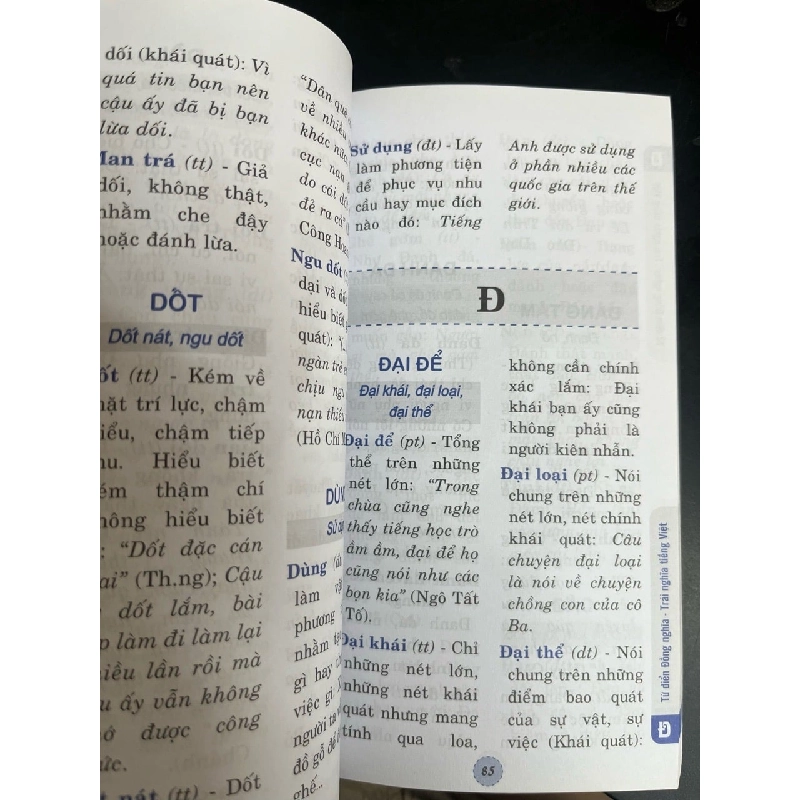 dối (khái quát): Vì
quá tin bạn nên
cậu ấy đã bị bạn
lừa dối.
Man trá (tt) - Giả
dối, không thật,
nhằm che đậy
hoặc đánh lừa.
DỐT
Dốt nát, ngu dốt
(tt) - Kém về
trí lực, chậm
chậm tiếp
Hiểu biết
thậm chí
không hiểu biết
: "Dốt đặc cán
mai" (Th.ng); Cậu
dốt lắm, bài
làm đi làm lại
nhiều lần rồi mà
ấy vẫn không
được công
(tt) - Dốt
"Dân
về nhiều
khác
cục
do cái
đẻ ra
Công
Ngu dốt
dại và
hiểu biết
quát):
ngàn
chịu
nạn
(Hồ Chí
Dùng
làm
phương
nhằm
gì hay
việc gì.
người
đồ gỗ để
ghế..
Sử dụng (đt) - Lấy
làm phương tiện
để phục vụ nhu
cầu hay mục đích
nào đó: Tiếng
Anh được sử dụng
ở phần nhiều các
quốc gia trên thế
giới.
Đ
ĐẠI ĐỂ
Đại khái, đại loại,
đại thể
Đại để (pt) - Tổng
thể trên những
nét lớn: "Trong
chùa cũng nghe
thấy tiếng học trò
ầm ầm, đại để họ
cũng nói như các
bọn kia" (Ngô Tất
Tố).
Đại khái (tt) - Chỉ
những nét lớn,
những nét khái
quát nhưng mang
tính qua loa,
không cần chính
xác lắm: Đại
khái bạn ấy cũng
không phải là
người kiên nhẫn.
Đại loại (pt) - Nói
chung trên những
nét lớn, nét chính
khái quát: Câu
chuyện đại loại
là nói về chuyện
chồng con của cô
Ba.
Đại thể (dt) - Nói
chung trên những
điểm bao quát
của sự vật, sự
việc (Khái quát):
Từ điển Đồng nghĩa - Trái nghĩa tiếng Việt
Đ
85